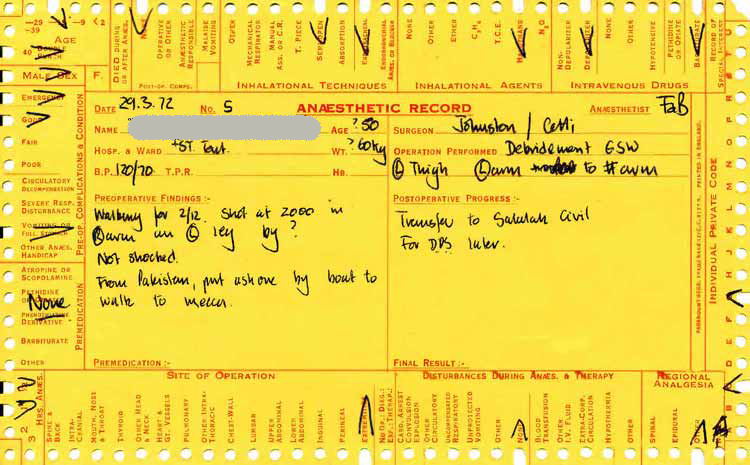 -29
-39
-9 < 2
40
AGE
DOUBLE
BIRTH
MALE SEX
F.
DIED DURING
OR AFTER ANÆS.
NONE
OPERATIVE
OR OTHER
ANÆSTHETIC
RESPONSIBLE
MALAISE
VOMITING
OTHER
MECHANICAL
RESPIRATOR
MANUAL
ASS. OR C.R.
T. PIECE
SEMI OPEN
ABSORPTION
ENDOTRACHEAL
NONE
OTHER
OTHER
C₃H₆
T.C.E.
HALOTHANE
N₂O
NON-
DEPOLARIZER
DEPOLARIZER
NONE
OTHER
HYPOTENSIVE
PETHIDINE
OR OPIATE
BARBITURATE
RECORD OF
SPECIAL INTEREST
POST-OP. COMPS.
INHALATIONAL TECHNIQUES
INHALATIONAL AGENTS
INTRAVENOUS DRUGS
EMERGENCY
GOOD
FAIR
POOR
CIRCULATORY
DECOMPENSATION
SEVERE RESP.
DISTURBANCE
VOMITING OR
FULL STOMACH
OTHER ANÆS.
HANDICAP
PRE-OP. COMPLICATIONS & CONDITION
ATROPINE OR
SCOPOLAMINE
PETHIDINE
None
PHENOTHIAZINE
DERIVATIVE
BARBITURATE
OTHER
PREMEDICATION
DATE 29.3.72 No. 5 ANÆSTHETIC RECORD ANÆSTHETIST FaB
NAME AGE ? 50 SURGEON Johnston / Cetti
HOSP. & WARD FST Tent. WT. ? 60kg OPERATION PERFORMED Debridement GSW
B.P. 120/70 T.P.R. HB. (L) Thigh (L) arm to # arm
PREOPERATIVE FINDINGS :-
Walking for 2/12. Shot at 2000 in
arm an (L) leg by ?
Not shocked.
From Pakistan, put ashore by boat to
walk to mecca.
PREMEDICATION :-
POSTOPERATIVE PROGRESS :-
Transfer to Salalah Civil
For DPS later.
FINAL RESULT :-
PRINTED IN ENGLAND.
INDIVIDUAL PRIVATE CODE
SITE OF OPERATION
DISTURBANCES DURING ANÆS. & THERAPY
REGIONAL
ANALGESIA
3 2
HRS ANÆS.
SPINE &
BACK
INTRA-
CRANIAL
MOUTH, NOSE
& THROAT
THYROID
OTHER HEAD
& NECK
HEART &
GT. VESSELS
PULMONARY
OTHER INTRA-
THORACIC
CHEST-WALL
LUMBAR
UPPER
ABDOMINAL
LOWER
ABDOMINAL
INGUINAL
PERINEAL
EXTREMITIES
NO OP., DIAG.:
EXP. :THERAP.:
CARD. ARREST
CONVULSION
EXPLOSION
OTHER
CIRCULATORY
UNCOMPENSATED
RESPIRATORY
UNPROTECTED
VOMITING
OTHER
NONE
BLOOD
TRANSFUSION
OTHER
I.V. FLUID
EXTRA-CORP.
CIRCULATION
HYPOTHERMIA
OTHER
SPINAL
EPIDURAL
OTHER